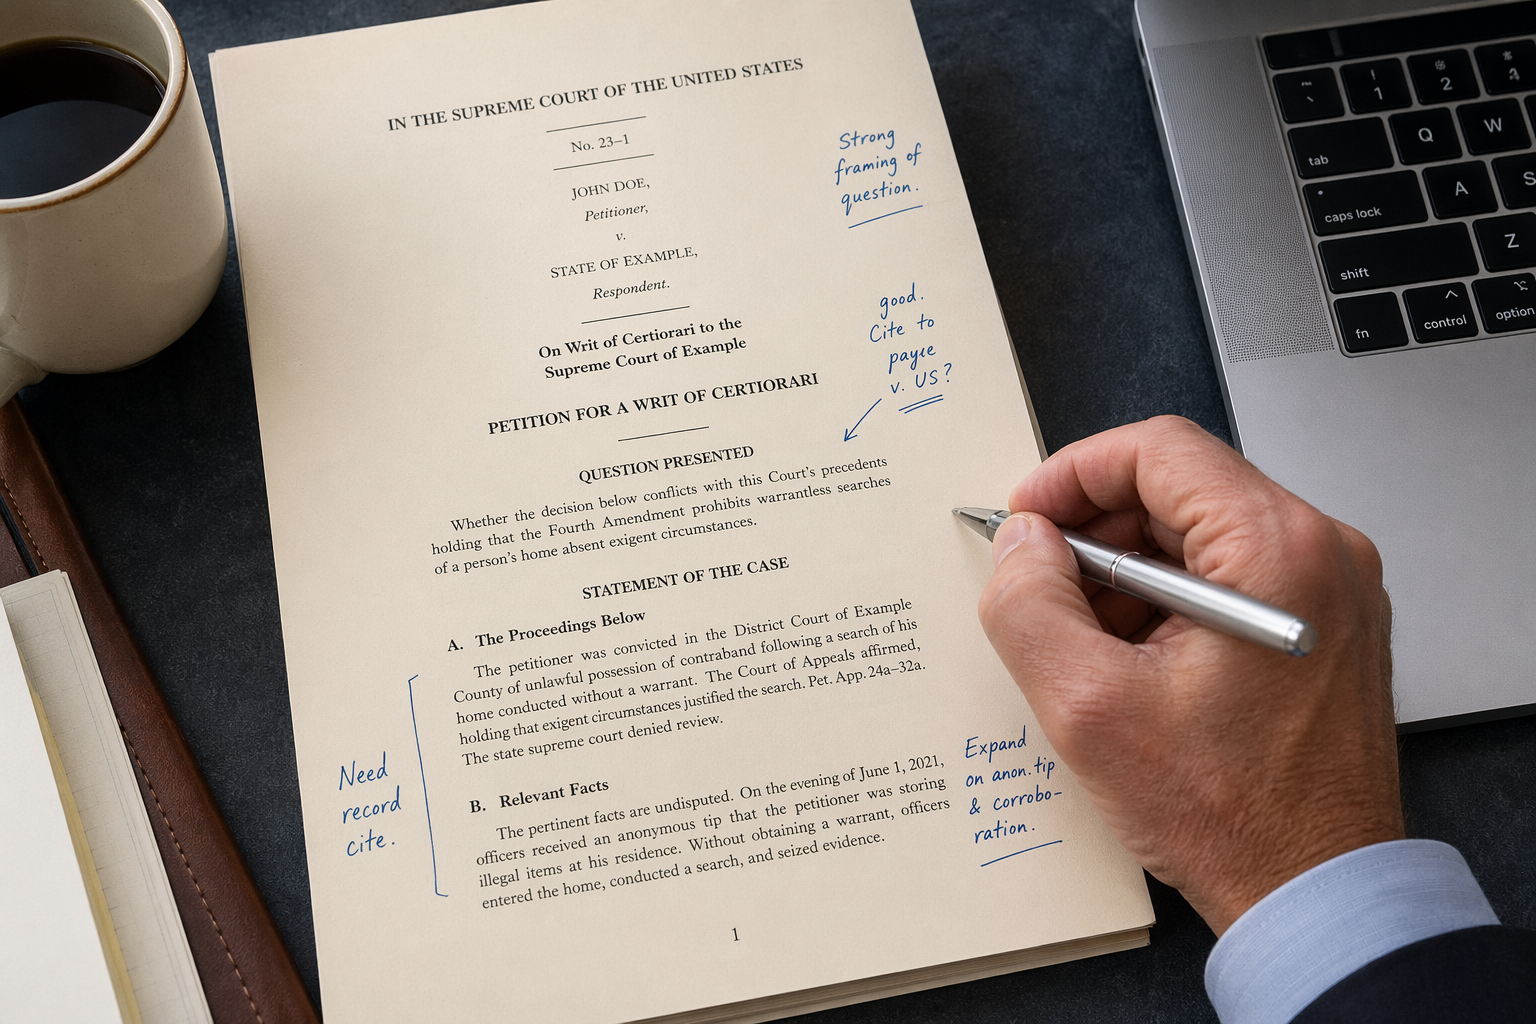 IN THE SUPREME COURT OF THE UNITED STATES
No. 23–1
JOHN DOE,
Petitioner,
v.
STATE OF EXAMPLE,
Respondent.
On Writ of Certiorari to the
Supreme Court of Example
PETITION FOR A WRIT OF CERTIORARI
QUESTION PRESENTED
Whether the decision below conflicts with this Court's precedents
holding that the Fourth Amendment prohibits warrantless searches
of a person's home absent exigent circumstances.
STATEMENT OF THE CASE
A. The Proceedings Below
The petitioner was convicted in the District Court of Example
County of unlawful possession of contraband following a search of his
home conducted without a warrant. The Court of Appeals affirmed,
holding that exigent circumstances justified the search. Pet. App. 24a–32a.
The state supreme court denied review.
B. Relevant Facts
The pertinent facts are undisputed. On the evening of June 1, 2021,
officers received an anonymous tip that the petitioner was storing
illegal items at his residence. Without obtaining a warrant, officers
entered the home, conducted a search, and seized evidence.
1
Strong
framing of
question.
good.
Cite to
v. US?
Need
record
cite.
Expand
on anon. tip
& corrobo-
ration.
! 1
@ 2
tab
Q
W
caps lock
A
S
shift
Z
fn
control
option